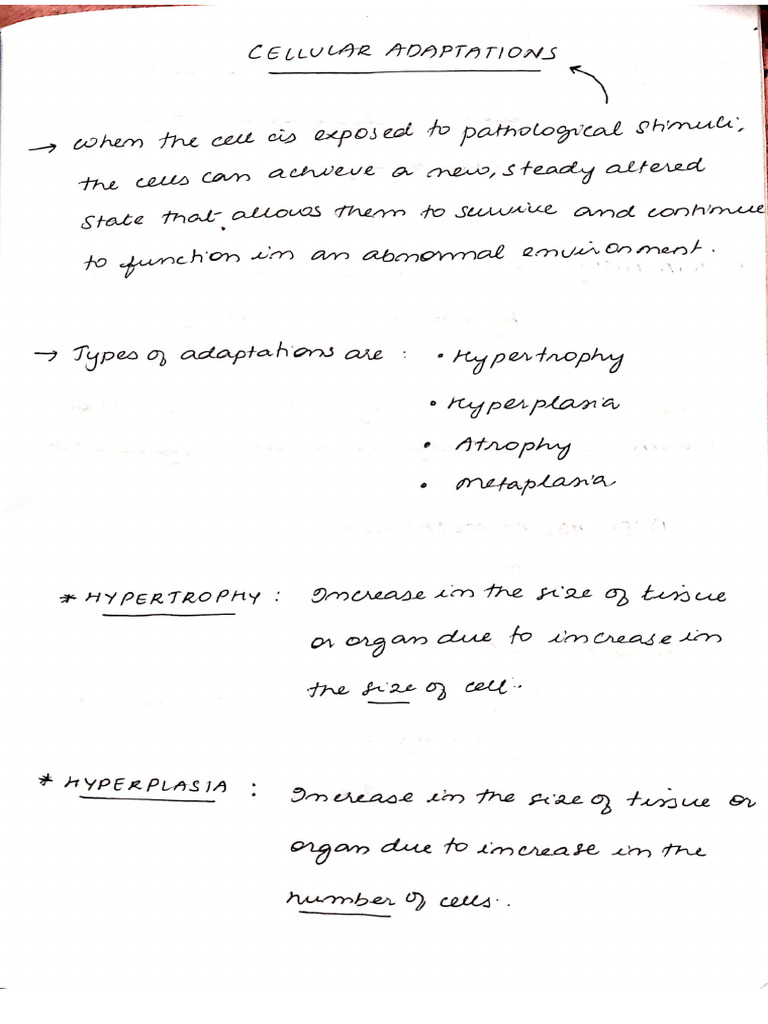 CELLULAR ADAPTATIONS
→ When the cell is exposed to pathological stimuli,
the cells can achieve a new, steady altered
state that allows them to survive and continue
to function in an abnormal environment.
→ Types of adaptations are : • Hypertrophy
• Hyperplasia
• Atrophy
• Metaplasia
* HYPERTROPHY : Increase in the size of tissue
or organ due to increase in
the size of cell.
* HYPERPLASIA : Increase in the size of tissue or
organ due to increase in the
number of cells.